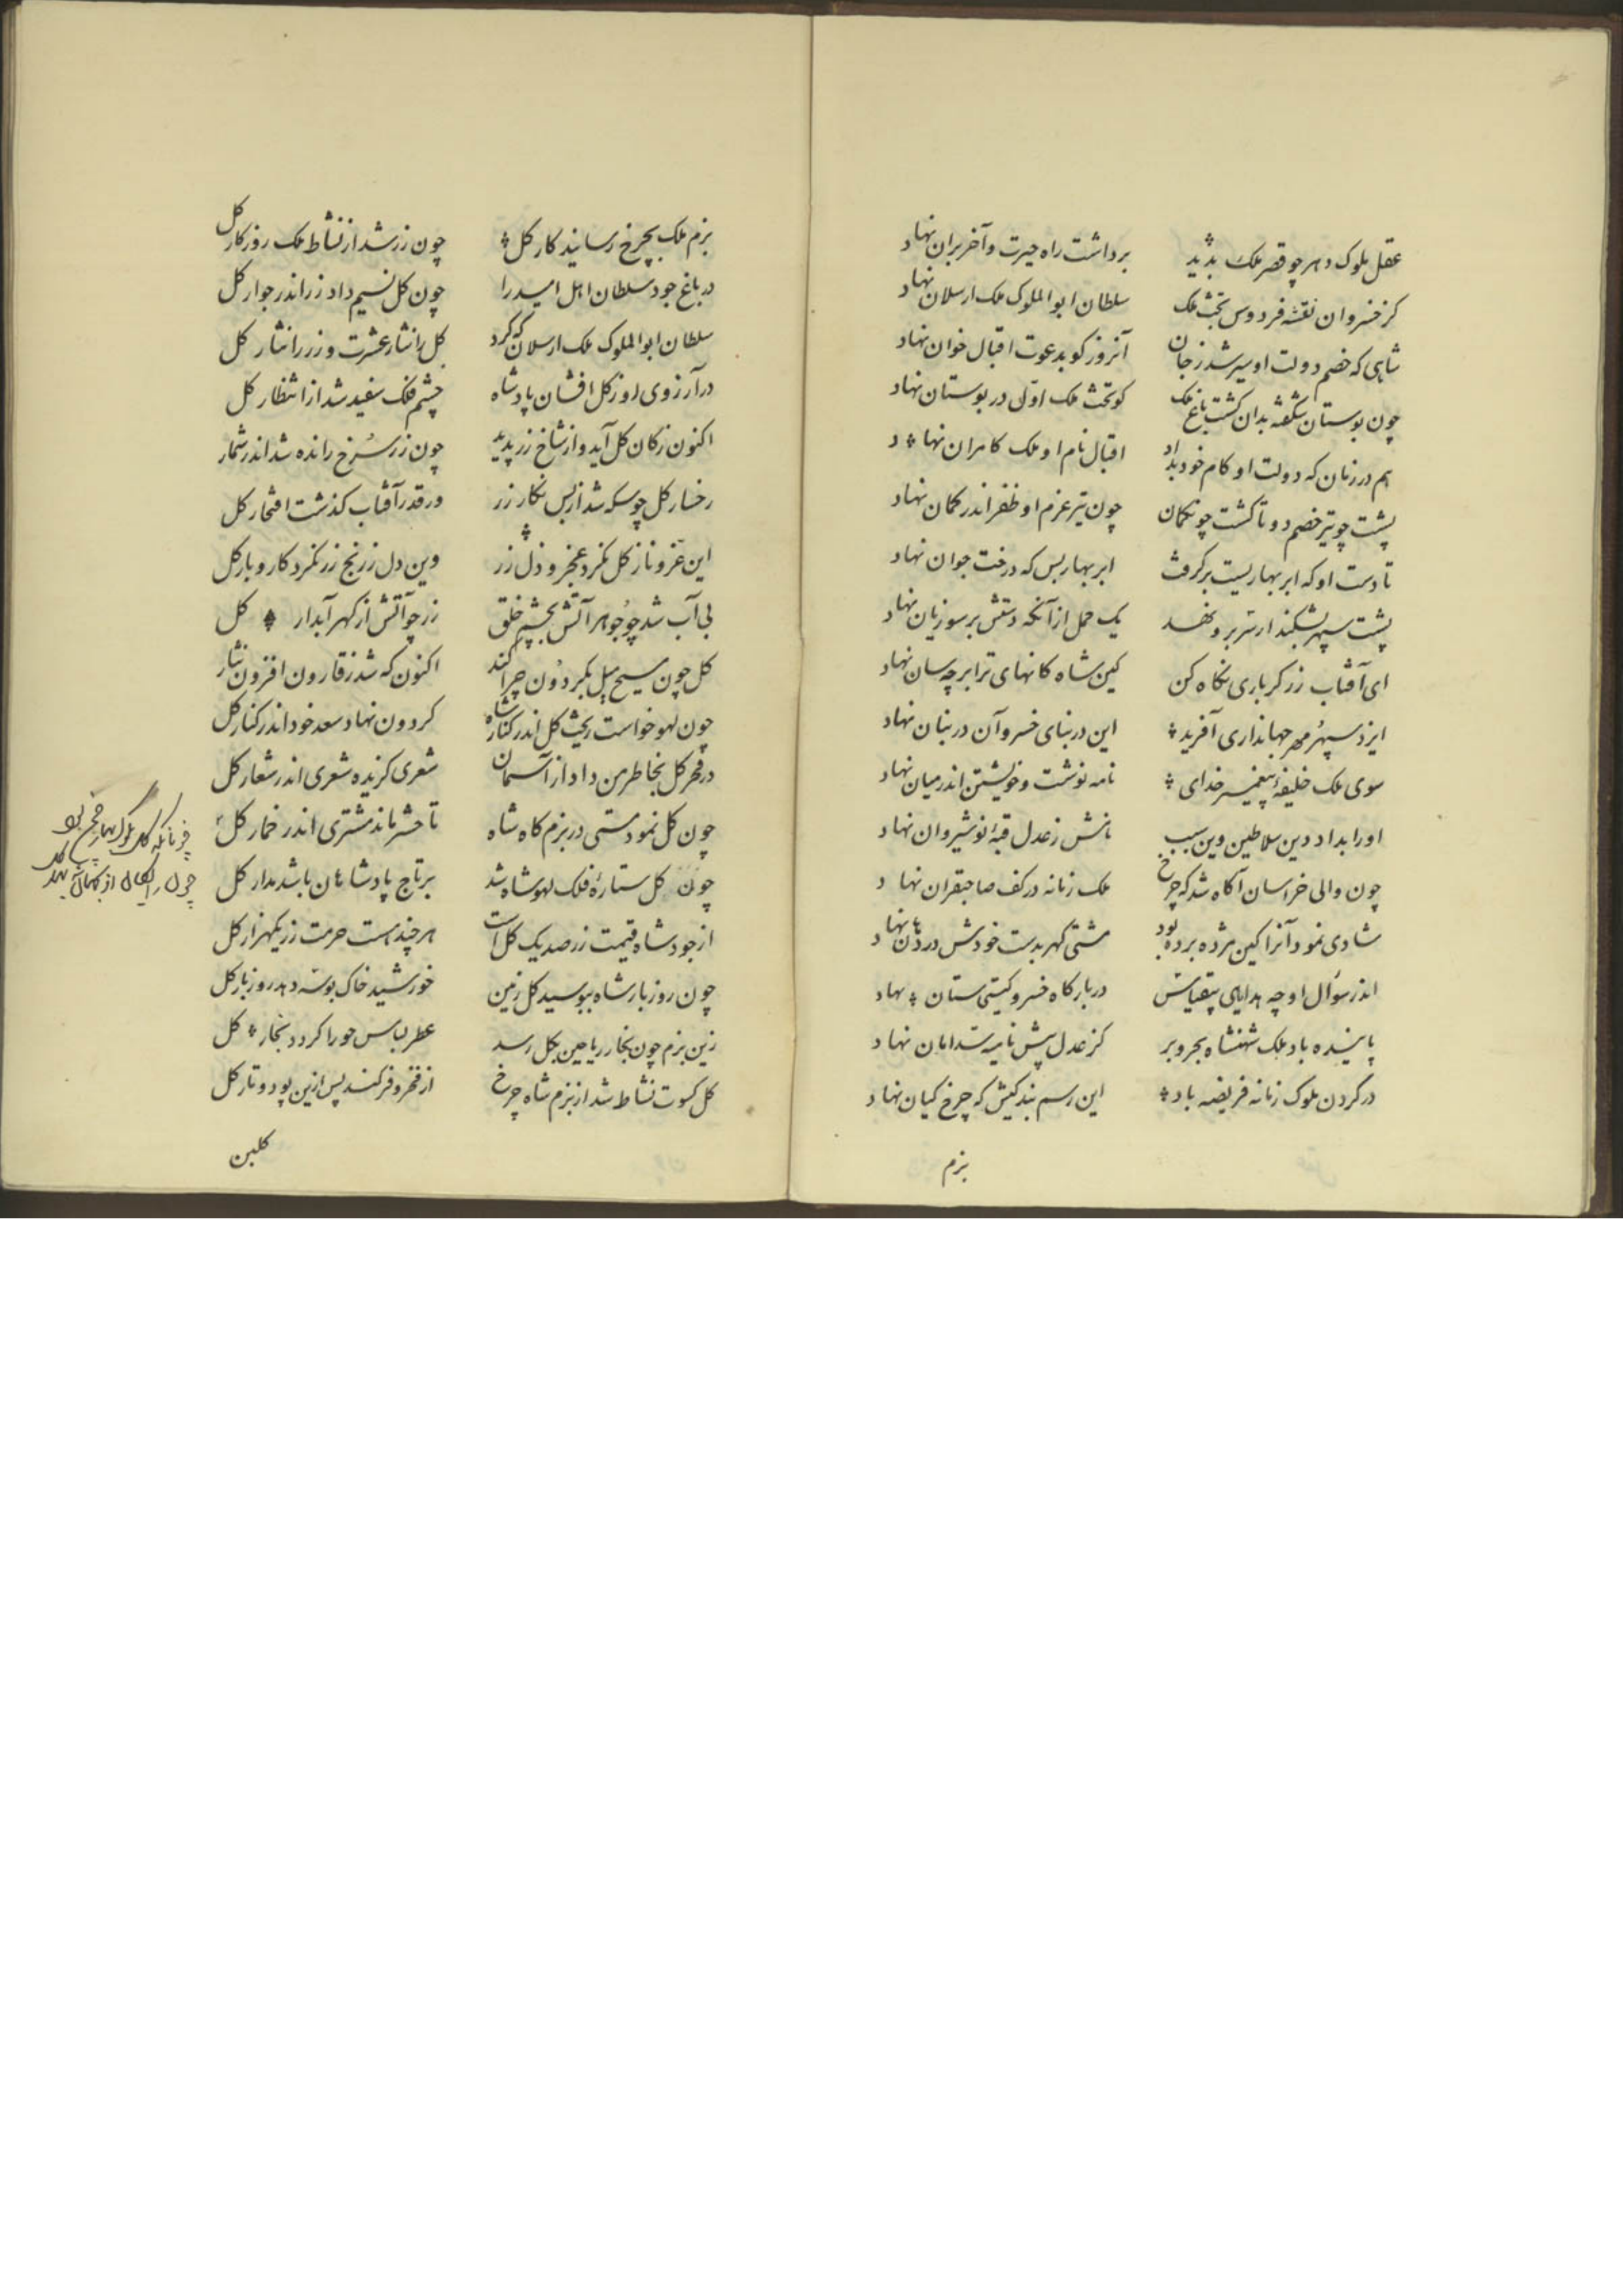 عقل ملوک دهر چو قصر ملک بدید برداشت راه حیرت و آخر بران نهاد
کز خسروان نقشه فردوس تخت ملک سلطان ابوالملوک ملک ارسلان نهاد
شاهی که خصم دولت او سیر شد ز جان آنروز کو بدعوت اقبال خوان نهاد
چون بوستان شکفته بدان کشت باغ ملک کو تخت ملک اول در بوستان نهاد
هم در زمان که دولت او کام خود بداد اقبال نام او ملک کامران نهاد
پشت چو تیر خصم دو تا کشت چون کمان چون تیر عزم او ظفر اندر کمان نهاد
تا دست او که ابر بهاریست بر کرفت ابر بهار بس که درخت جوان نهاد
پشت سپهر بشکند ار بر نهد یک حمل از آنکه دستش بر سوزیان نهاد
ای آفتاب زر کر باری نکاه کن کین شاه کانهای ترا بر چه سان نهاد
ایزد سپهر مهر جهانداری آفرید این در بنای خسرو آن در بنان نهاد
سوی ملک خلیفه پیغمبر خدای نامه نوشت و خویشتن اندر میان نهاد
او را بداد دین سلاطین وین سبب نامش ز عدل قبه نوشیروان نهاد
چون والی خراسان آکاه شد که چرخ ملک زمانه در کف صاحبقران نهاد
شادی نمود آنرا کین مژده برده بود مشتی کهر بدست خودش در دهان نهاد
اندر سؤال او چه هدایای بیقیاس در بارکاه خسرو کیتی ستان نهاد
پاینده باد ملک شهنشاه بحر و بر کز عدل پیش نامیه نهاد
در کردن ملوک زمانه فریضه باد این رسم بندکیش که چرخ کیان نهاد
بزم
بزم ملک بچرخ رسانید کار کل چون زر شد از نشاط ملک روزکار کل
در باغ جود سلطان اهل امید را چون کل نسیم داد زر اندر جوار کل
سلطان ابوالملوک ملک ارسلان که کرد کل را نثار عشرت و زر را نثار کل
در آرزوی روز کل افشان پادشاه چشم فلک سفید شد از انتظار کل
اکنون ز کان کل آید و از شاخ زر پدید چون زر سرخ رانده شد اندر شمار
رخسار کل چو سکه شد از بس نکار زر ور قدر آفتاب کذشت افتخار کل
این عز و ناز کل نکرد عجز و ذل زر وین دل ز رنج زر نکرد کار و بار کل
بی آب شد چو جوهر آتش بچشم خلق زر چو آتش از کهر آبدار کل
کل چون مسیح میل بکردون چرا کند اکنون که شد ز قارون افزون نثار
چون لهو خواست ریخت کل اندر کنار شاه کردون نهاد سعد خود اندر کنار کل
در فخر کل بخاطر من داد از آسمان شعری کزیده شعری اندر شعار کل
چون کل نمود مستی در بزم کاه شاه تا حشر ماند مشتری اندر خمار کل
چون کل ستاره فلک لهو شاه شد بر تاج پادشاهان باشد مدار کل
از جود شاه قیمت زر صد یک کل است هر چند هست حرمت زر یکهزار کل
چون روز بار شاه ببوسید کل زمین خورشید خاک بوسه دهد روز بار کل
زین بزم چون بخار ریاحین بکل رسد عطر لباس حورا کردد بخار کل
کل کسوت نشاط شد از بزم شاه چرخ از فخر و فر کند پس ازین پود و تار کل
کلبن